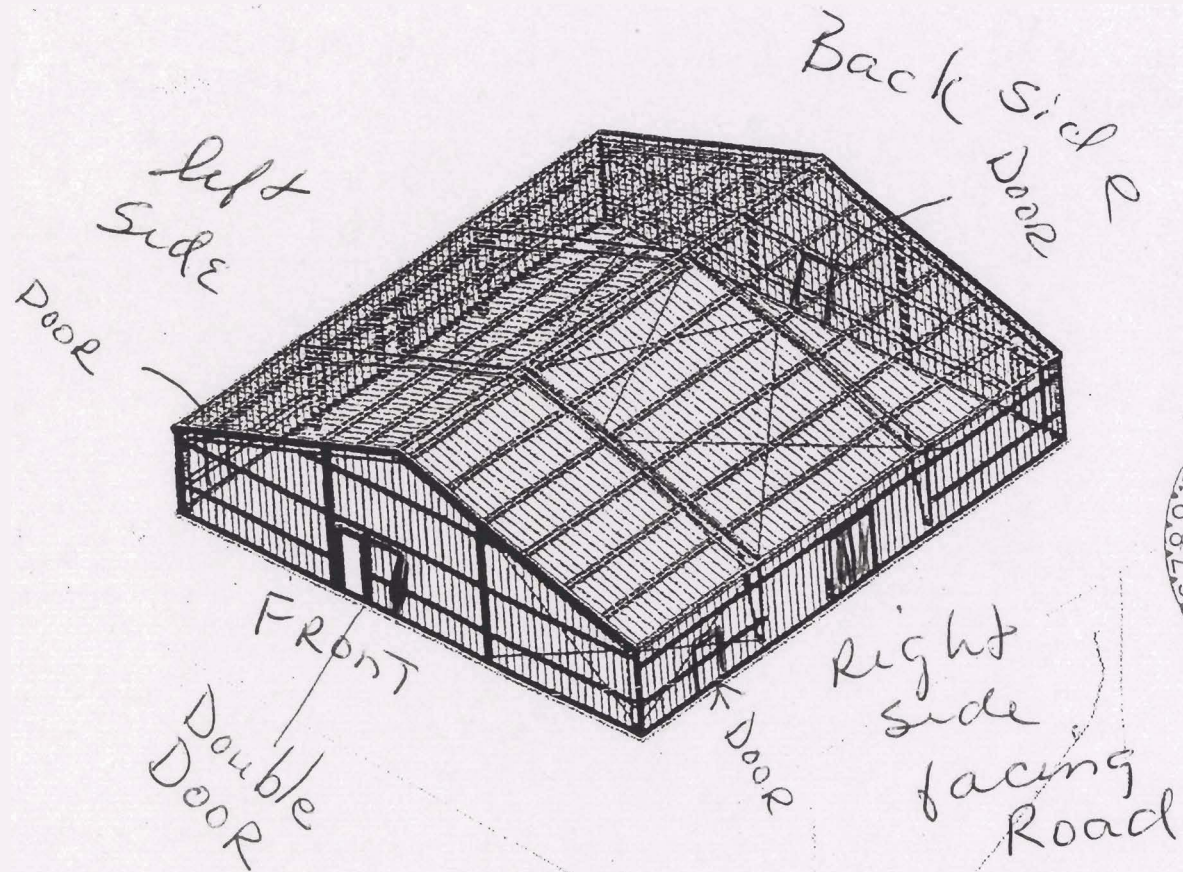 Back side
DOOR
left
Side
DOOR
FRONT
Double
DOOR
DOOR
Right
side
facing
Road